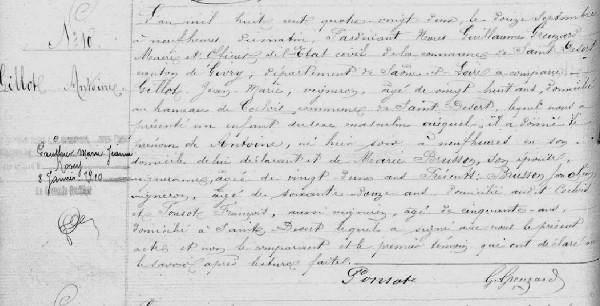 N° 10
Gillot Antoine
Gauffre Marie Jeanne
8 Janvier 1910
L'an mil huit cent quatre-vingt deux, le douze Septembre
à neuf heures du matin, Pardevant Nous Guillaume
Maire et Officier de l'Etat civil de la commune de Saint Désert
canton de Givry, département de Saône-et-Loire a comparu
Gillot Jean Marie, vigneron, âgé de vingt huit ans, domicilié
au hameau de commune de Saint Désert, lequel nous a
présenté un enfant du sexe masculin auquel il a donné le
prénom de Antoine, né hier soir, à neuf heures en son
domicile de lui déclarant et de Marie Buisson, son épouse,
vigneronne, âgée de vingt deux ans Présents: Buisson
vigneron, âgé de soixante-douze ans domicilié audit
et Ponsot François, aussi vigneron, âgé de cinquante ans,
domicilié à Saint Désert lequel a signé avec nous le présent
acte et non le comparant et le premier témoin qui ont déclaré ne
le savoir après lecture faite.
Ponsot